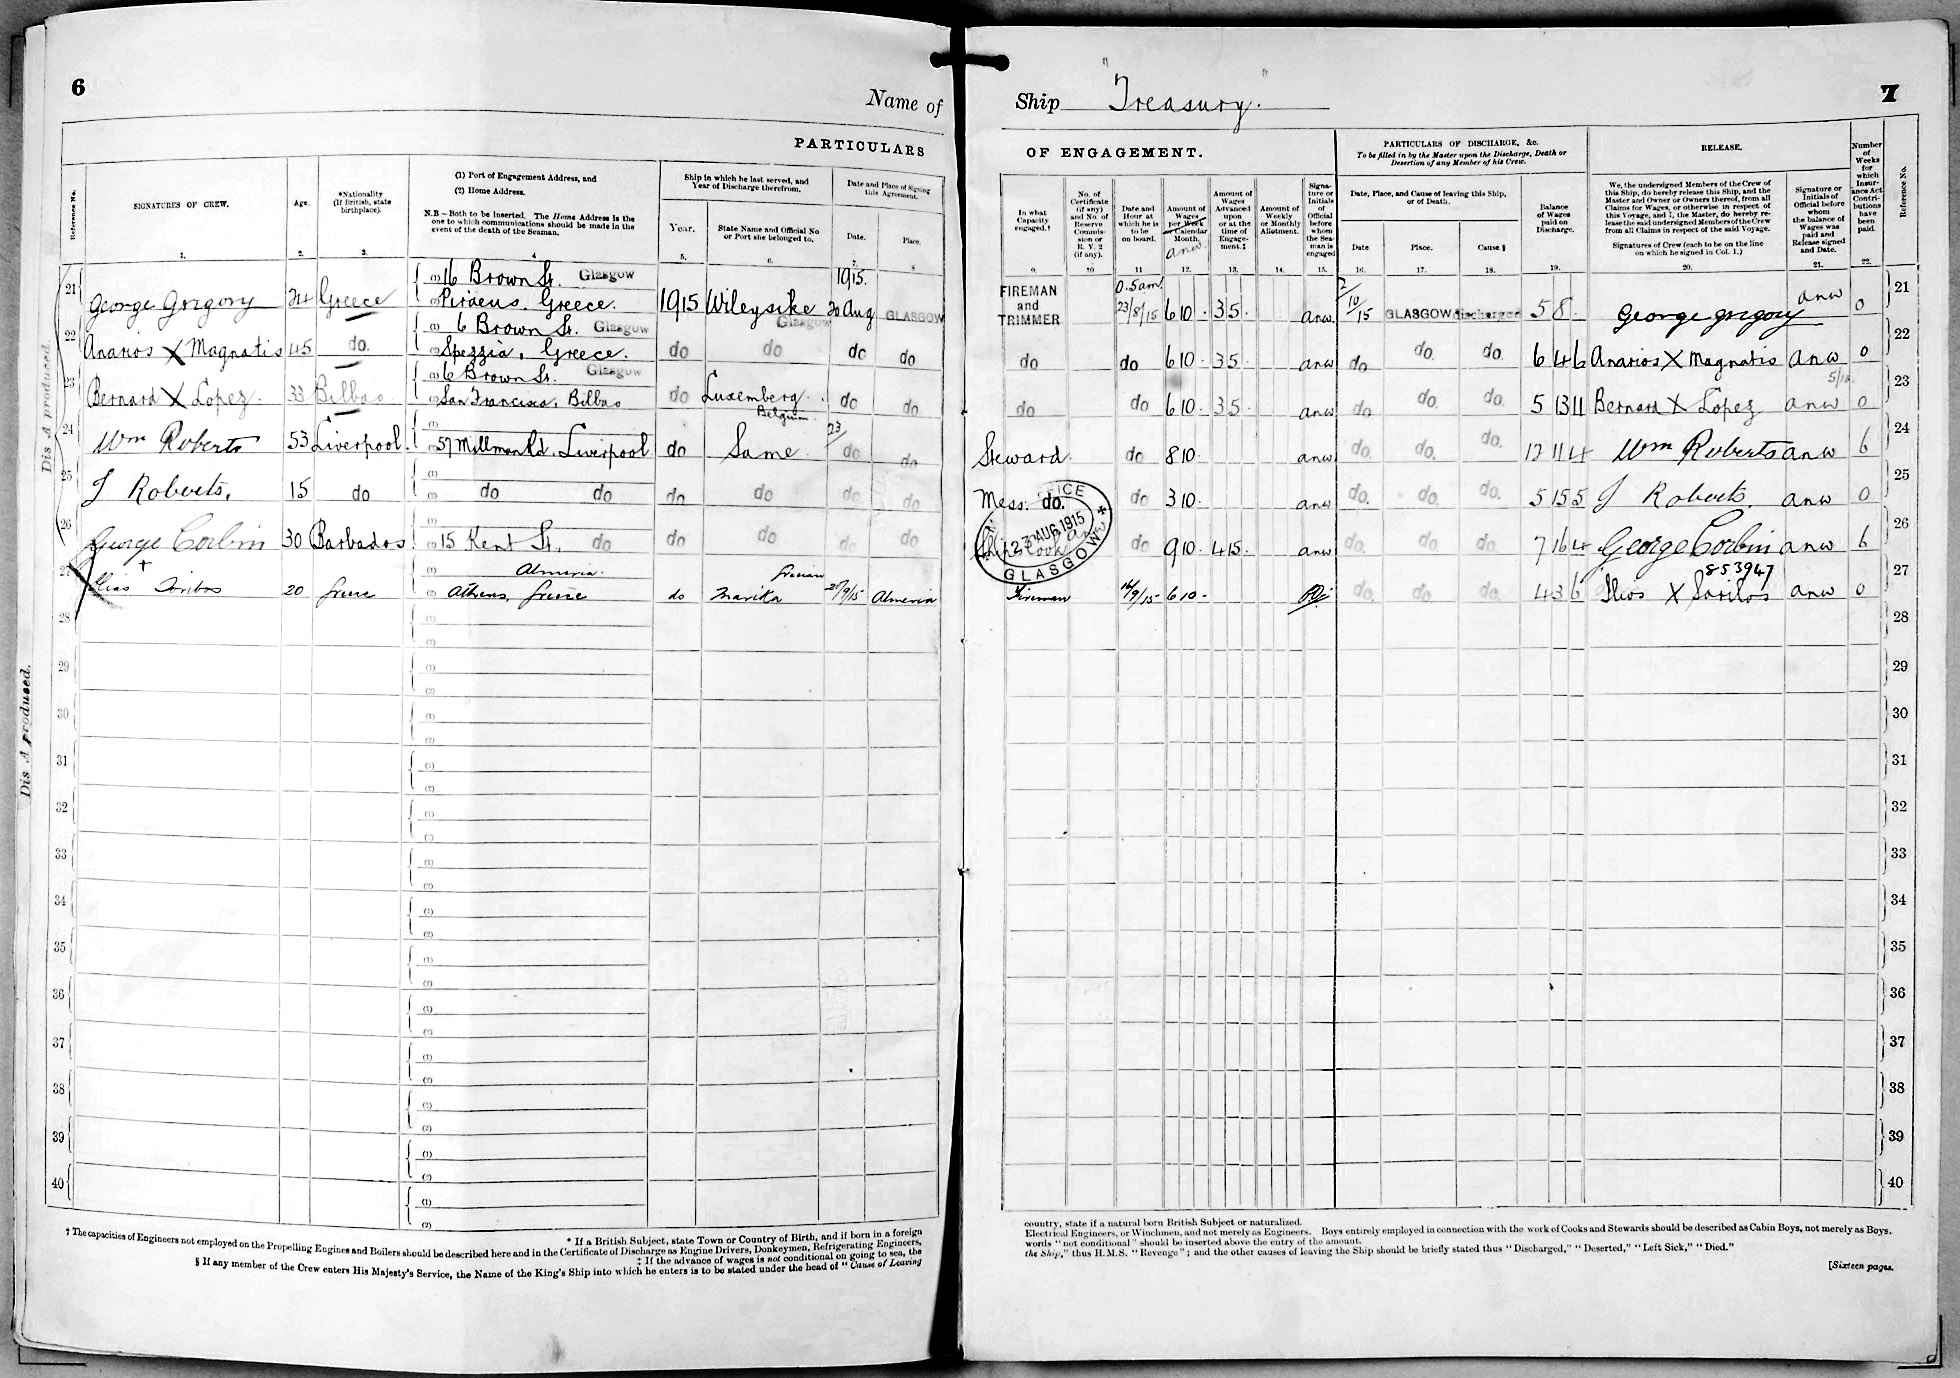 6
Name of
PARTICULARS
Reference No.
SIGNATURES OF CREW.
Age.
*Nationality
(If British, state
birthplace).
(1) Port of Engagement Address, and
(2) Home Address.
N.B—Both to be inserted. The Home Address is the
one to which communications should be made in the
event of the death of the Seaman.
Ship in which he last served, and
Year of Discharge therefrom.
Year.
State Name and Official No
or Port she belonged to.
Date and Place of Signing
this Agreement.
Date.
Place.
1. 2. 3. 4 5. 6. 7. 8
21 George Grigory 24 Greece (1) 16 Brown St. Glasgow
(2) Piraeus, Greece. 1915 Wileysike Glasgow 1915. 20 Aug GLASGOW
22 Anarios X Magnatis 45 do. (1) 6 Brown St. Glasgow
(2) Spezzia, Greece. do do do do
23 Bernard X Lopez 33 Bilbao (1) 6 Brown St. Glasgow
(2) San Francisco, Bilbao do Luxemberg Belgium do do
24 Wm Roberts 53 Liverpool. (1)
(2) 57 Millman Rd. Liverpool do Same 23/ do do
25 J Roberts. 15 do (1)
(2) do do do do do do
26 George Corbin 30 Barbados. (1)
(2) 15 Kent St. do do do do do
27 (1) Almeria.
20 Greece (2) Athens, Greece do Marika 20/9/15 Almeria
28 (1)
(2)
29 (1)
(2)
30 (1)
(2)
31 (1)
(2)
32 (1)
(2)
33 (1)
(2)
34 (1)
(2)
35 (1)
(2)
36 (1)
(2)
37 (1)
(2)
38 (1)
(2)
39 (1)
(2)
40 (1)
(2)
Dis A produced.
Dis A produced.
* If a British Subject, state Town or Country of Birth, and if born in a foreign
† The capacities of Engineers not employed on the Propelling Engines and Boilers should be described here and in the Certificate of Discharge as Engine Drivers, Donkeymen, Refrigerating Engineers,
‡ If the advance of wages is not conditional on going to sea, the
§ If any member of the Crew enters His Majesty's Service, the Name of the King's Ship into which he enters is to be stated under the head of "Cause of Leaving
7
Ship "Treasury."
OF ENGAGEMENT.
PARTICULARS OF DISCHARGE, &c.
To be filled in by the Master upon the Discharge, Death or
Desertion of any Member of his Crew.
RELEASE.
In what
Capacity
engaged.†
No. of
Certificate
(if any)
and No. of
Reserve
Commis-
sion or
R. V. 2
(if any).
Date and
Hour at
which he is
to be
on board.
Amount of
Wages
per Week
or Calendar
Month.
anw.
Amount of
Wages
Advanced
upon
or at the
time of
Engage-
ment.‡
Amount of
Weekly
or Monthly
Allotment.
Signa-
ture or
Initials
of
Official
before
whom
the Sea-
man is
engaged
Date, Place, and Cause of leaving this Ship,
or of Death.
Date
Place.
Cause.§
Balance
of Wages
paid on
Discharge.
We, the undersigned Members of the Crew of
this Ship, do hereby release this Ship, and the
Master and Owner or Owners thereof, from all
Claims for Wages, or otherwise in respect of
this Voyage, and I, the Master, do hereby re-
lease the said undersigned Members of the Crew
from all Claims in respect of the said Voyage.
Signatures of Crew (each to be on the line
on which he signed in Col. 1.)
Signature or
Initials of
Official before
whom
the balance of
Wages was
paid and
Release signed
and Date.
Number
of
Weeks
for
which
Insur-
ance Act
Contri-
butions
have
been
paid.
Reference No.
9. 10 11 12. 13. 14. 15. 16. 17. 18. 19. 20. 21. 22.
FIREMAN
and
TRIMMER 0.5am 23/8/15 6 10 . 3 5 . anw. 2/10/15 GLASGOW discharged 5 8 . George grigory anw 0 21
do do 6 10 . 3 5 . anw do do. do. 6 4 6 Anarios X Magnatis anw 0 22
do do 6 10 . 3 5 . anw do do. do. 5 13 11 Bernard X Lopez anw 0 23
Steward. do 8 10 . anw do. do. do. 12 11 4 Wm Roberts anw 6 24
Mess. do. do 3 10 anw do. do. do. 5 15 5 J Roberts. anw 0 25
Ship's Cook do 9 10 . 4 15 . anw do. do. do. 7 16 4 George Corbin anw 6 26
853947
Fireman 16/9/15 6 10 . do. do. do. 4 3 6 anw 0 27
23 AUG 1915
GLASGOW
28
29
30
31
32
33
34
35
36
37
38
39
40
country, state if a natural born British Subject or naturalized.
Electrical Engineers, or Winchmen, and not merely as Engineers. Boys entirely employed in connection with the work of Cooks and Stewards should be described as Cabin Boys, not merely as Boys.
words "not conditional" should be inserted above the entry of the amount.
the Ship," thus H.M.S. "Revenge"; and the other causes of leaving the Ship should be briefly stated thus "Discharged," "Deserted," "Left Sick," "Died."
[Sixteen pages.